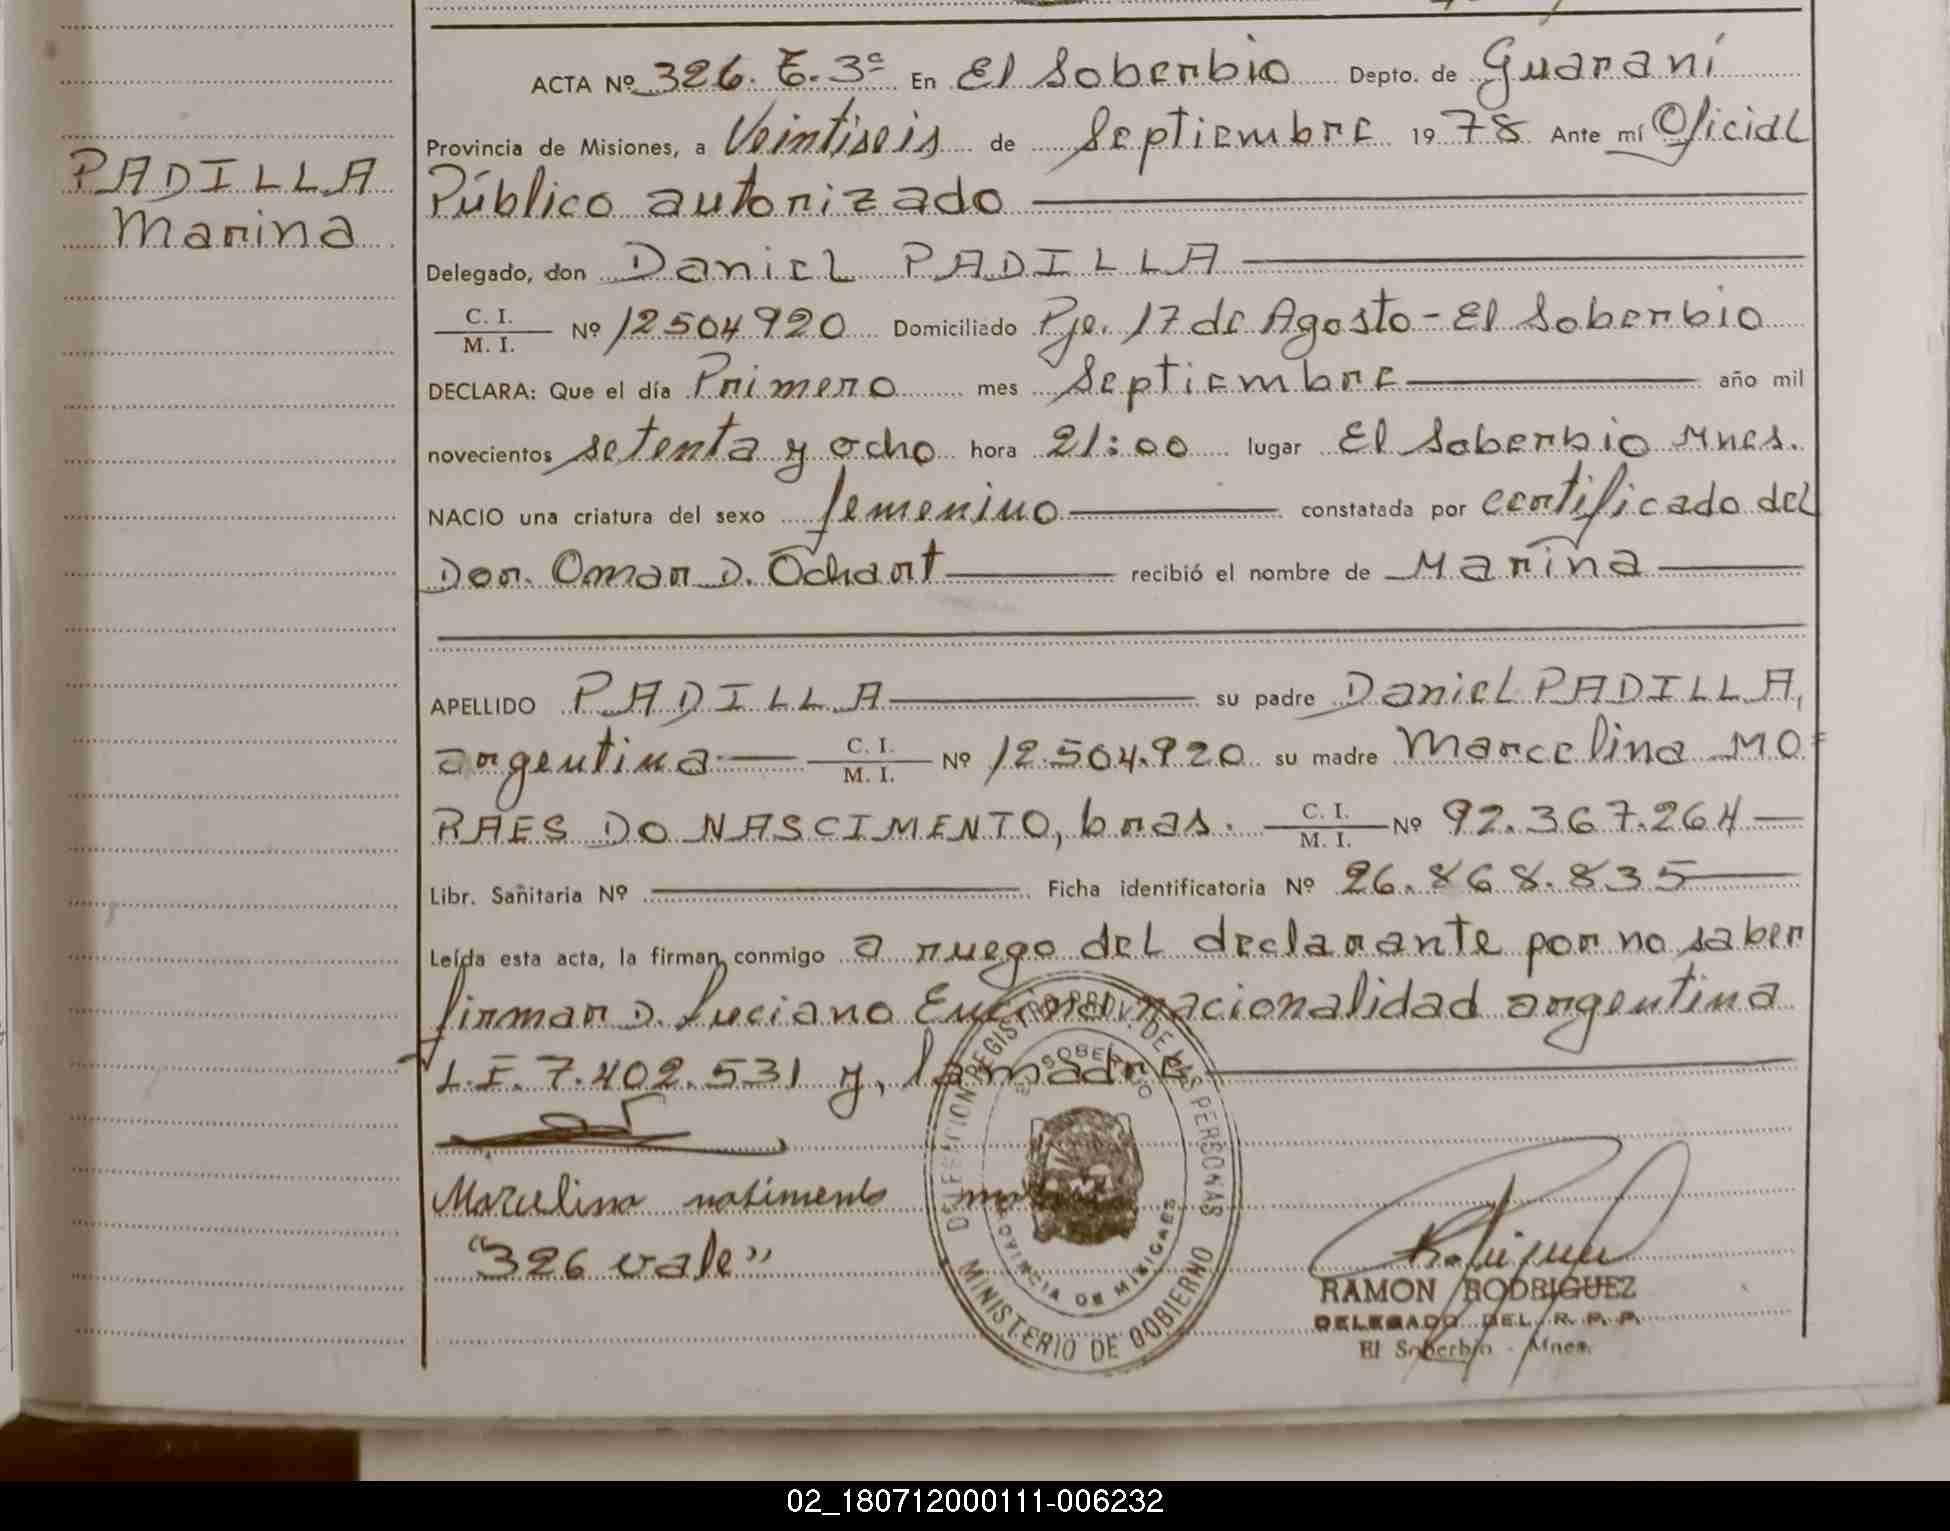 ACTA Nº 326. T. 3º En El Soberbio Depto. de Guaraní
Provincia de Misiones, a Veintiseis de Septiembre 1978 Ante mí Oficial
Público autorizado
PADILLA
Marina
Delegado, don Daniel PADILLA
C. I.
M. I.
Nº 12504920 Domiciliado Pje. 17 de Agosto - El Soberbio
DECLARA: Que el día Primero mes Septiembre año mil
novecientos setenta y ocho hora 21:00 lugar El Soberbio Mnes.
NACIO una criatura del sexo femenino constatada por certificado del
Dor. Omar D. Ochart recibió el nombre de Marina
APELLIDO PADILLA su padre Daniel PADILLA,
argentina C. I. M. I. Nº 12.504.920 su madre Marcelina MO=
RAES DO NASCIMENTO, bras. C. I. M. I. Nº 92.367.264
Libr. Sanitaria Nº Ficha identificatoria Nº 26.868.835
Leída esta acta, la firman conmigo a ruego del declarante por no saber
firmar D. Luciano nacionalidad argentina
L.E. 7.402.531 y, la madre
Marcelina nasimento
"326 vale"
DELEGACION REGISTRO PROV. DE LAS PERSONAS
EL SOBERBIO
PROVINCIA DE MISIONES
MINISTERIO DE GOBIERNO
RAMON RODRIGUEZ
DELEGADO DEL R. P. P.
El Soberbio - Mnes.
02_180712000111-006232